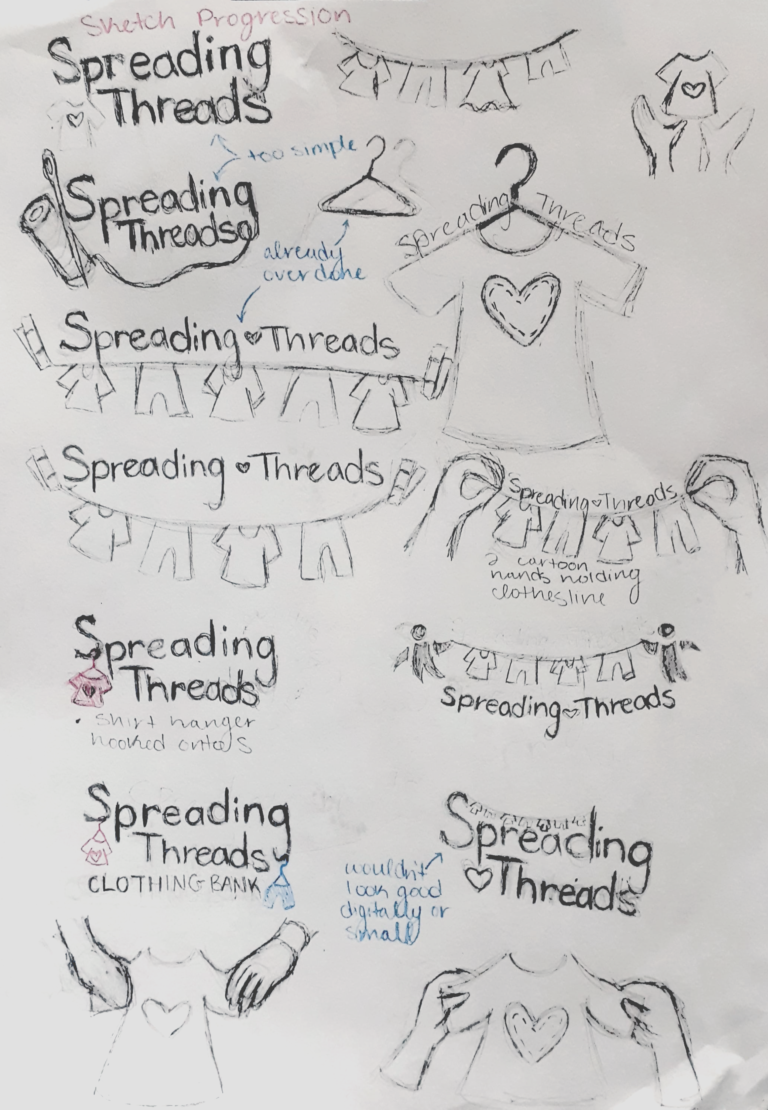 Sketch Progression
Spreading
Threads
too simple
Spreading
Threads
already
overdone
Spreading Threads
Spreading Threads
Spreading Threads
Spreading Threads
2 cartoon
hands holding
clothesline
Spreading
Threads
• shirt hanger
hooked onto S
Spreading Threads
Spreading
Threads
CLOTHING BANK
wouldn't
look good
digitally or
small
Spreading
Threads